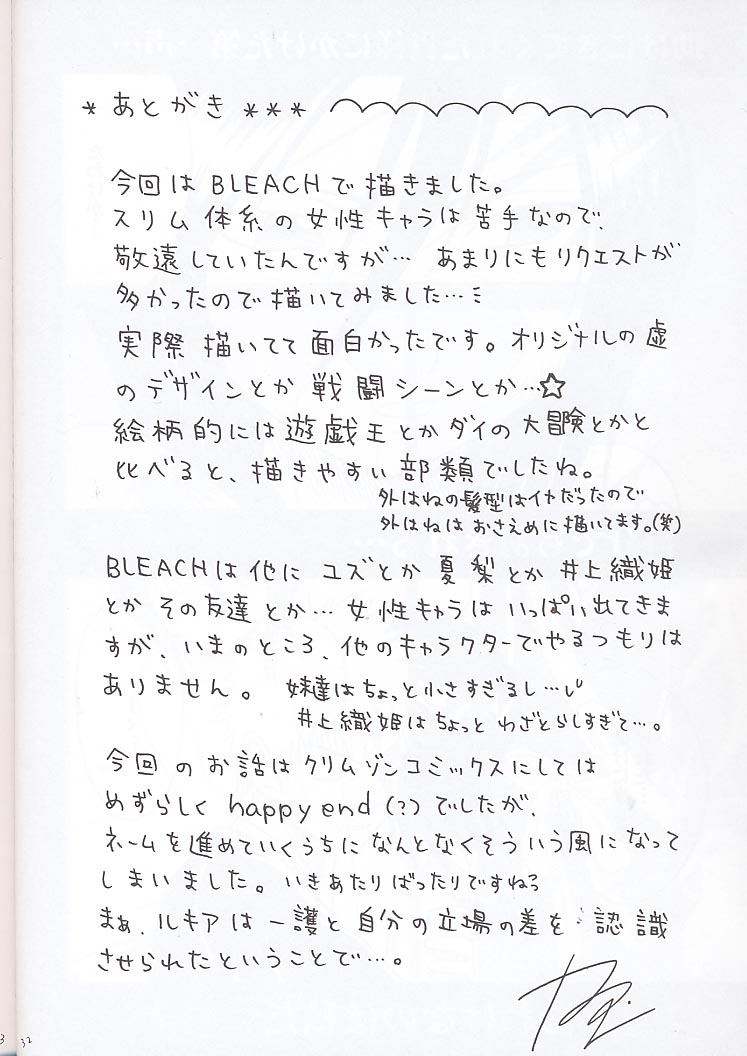 * あとがき ***
今回は BLEACHで描きました。
スリム 体系の女性キャラは苦手なので、
敬遠していたんですが… あまりにもリクエストが
多かったので描いてみました…ミ
実際 描いてて面白かったです。オリジナルの虚
のデザインとか 戦闘シーンとか…☆
絵柄的には遊戯王とかダイの大冒険とかと
比べると、描きやすい部類でしたね。
外はねの髪型はイヤだったので
外はねは おさえめに描いてます。(笑)
BLEACHは他に ユズとか 夏梨とか 井上織姫
とか その友達とか… 女性キャラは いっぱい出てきま
すが、いまのところ、他のキャラクターでやるつもりは
ありません。 妹達はちょっと小さすぎるし…
井上織姫はちょっと わざとらしすぎて…。
今回 のお話はクリムゾンコミックスにしては
めずらしく happy end (?)でしたが、
ネームを進めていくうちに なんとなくそういう風になって
しまいました。いきあたりばったりですね
まぁ、ルキアは一護と自分の立場の差を 認識
させられたということで…。
32